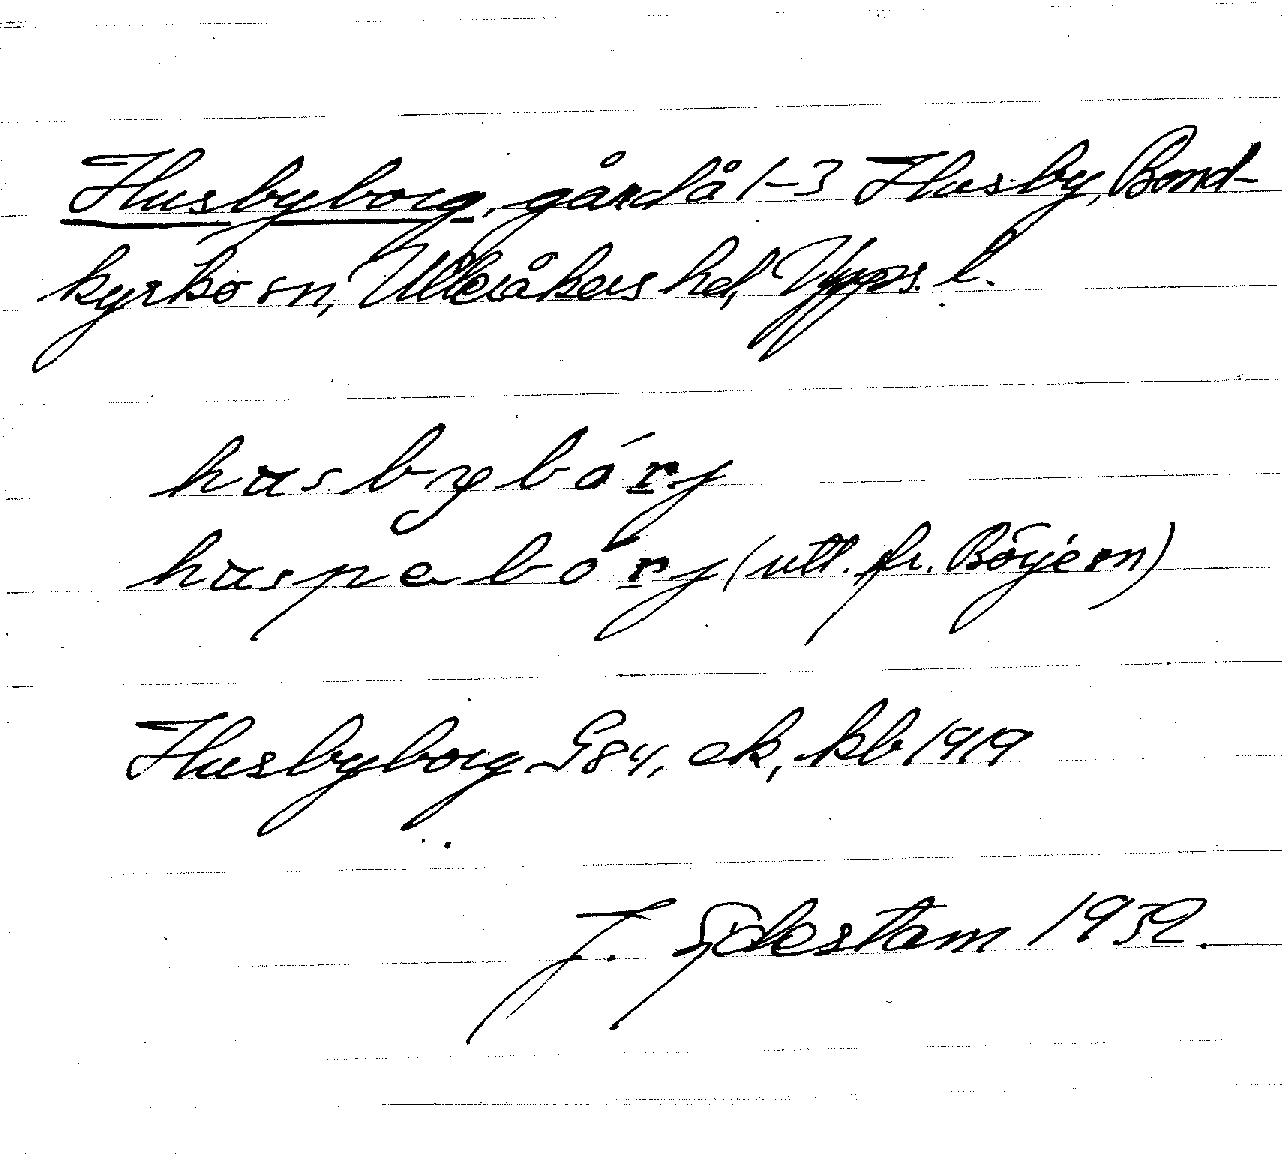 Husbyborg, gård å 1-3 Husby, Bond-
kyrko sn, Ulleråkers hd, Upps. l.
husbybórj
huspebórj (utt. fr. Börje sn)
Husbyborg G84, ek, kb 1919
J. Sjdestam 1932.